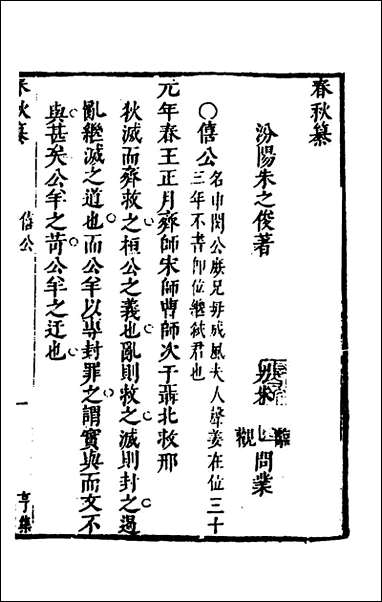 春秋纂
汾陽朱之俊著
問業
○僖公 名申閔公庶兄母成風夫人聲姜在位三十
三年不書即位繼弒君也
元年春王正月齊師宋師曹師次于聶北救邢
狄滅而齊救之桓公之義也亂則救之滅則封之遏
亂繼滅之道也而公羊以專封罪之謂實與而文不
與甚矣公羊之苛公羊之迂也
春秋纂
僖公
一
亨集